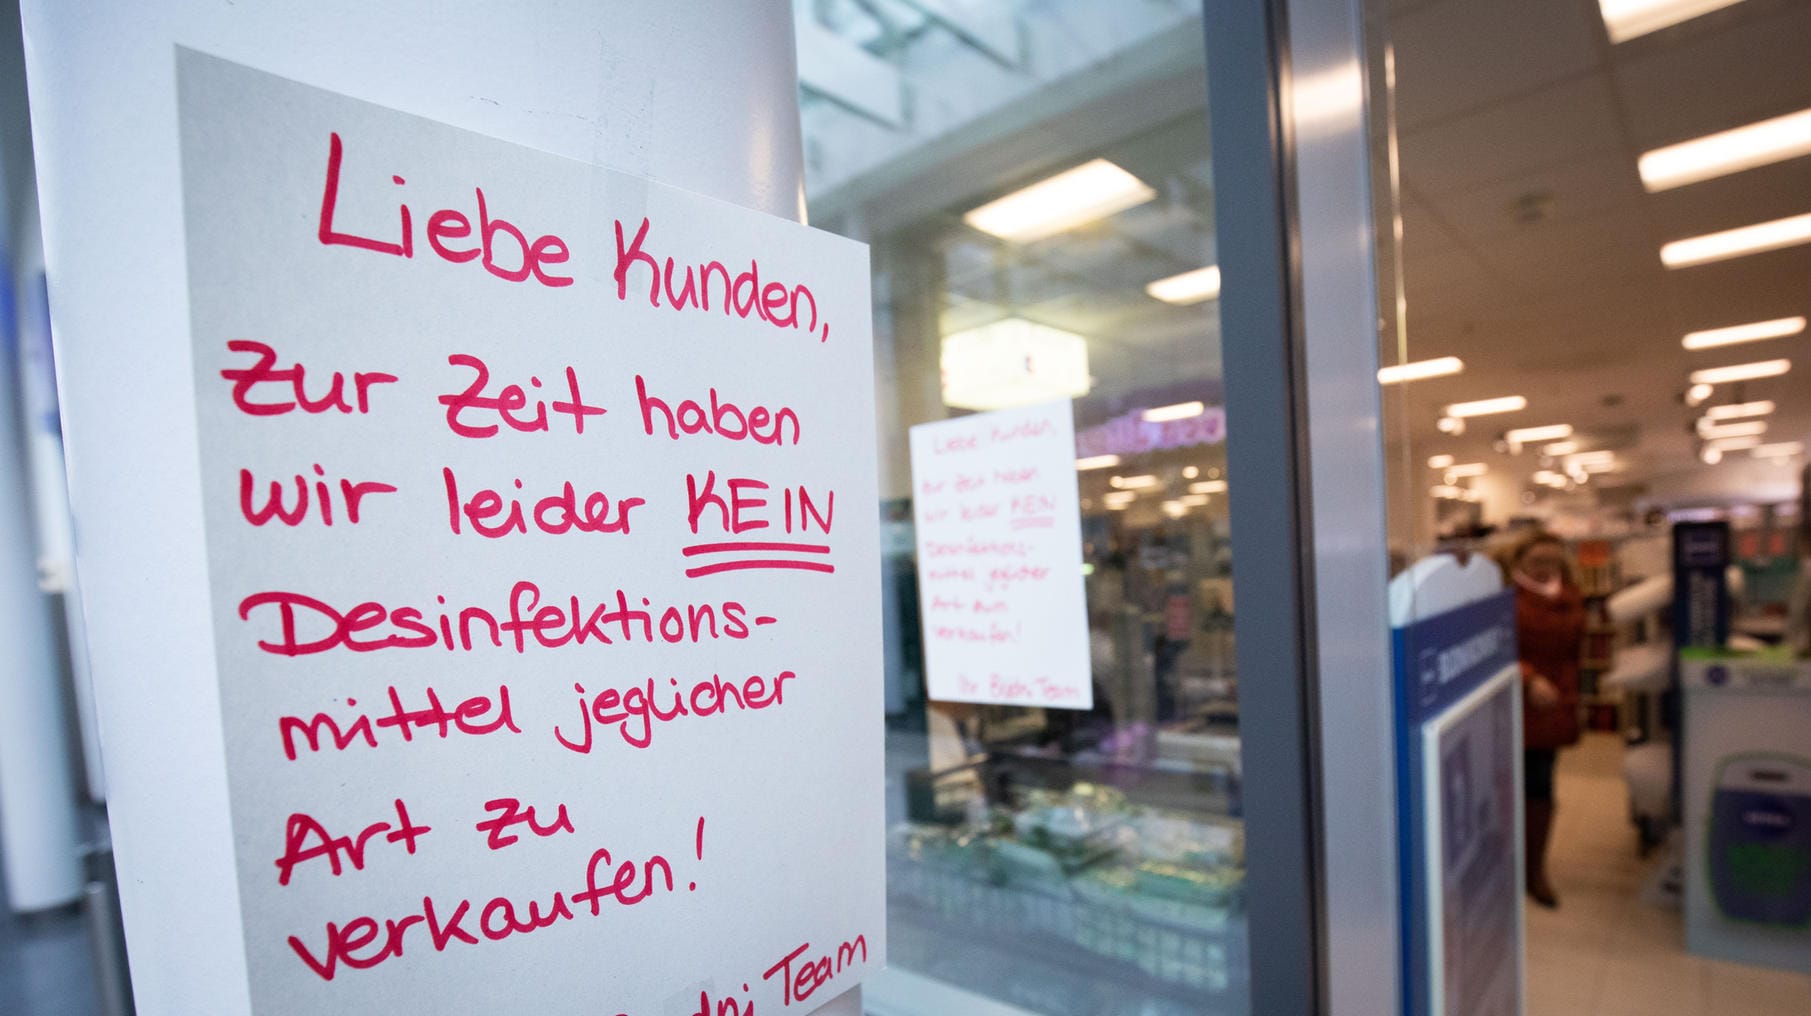 Liebe Kunden,
zur Zeit haben
wir leider KEIN
Desinfektions-
mittel jeglicher
Art zu
verkaufen!
Team
Liebe Kunden,
zur Zeit haben
wir leider KEIN
Desinfektions-
mittel jeglicher
Art zum
verkaufen!
Ihr Budni Team